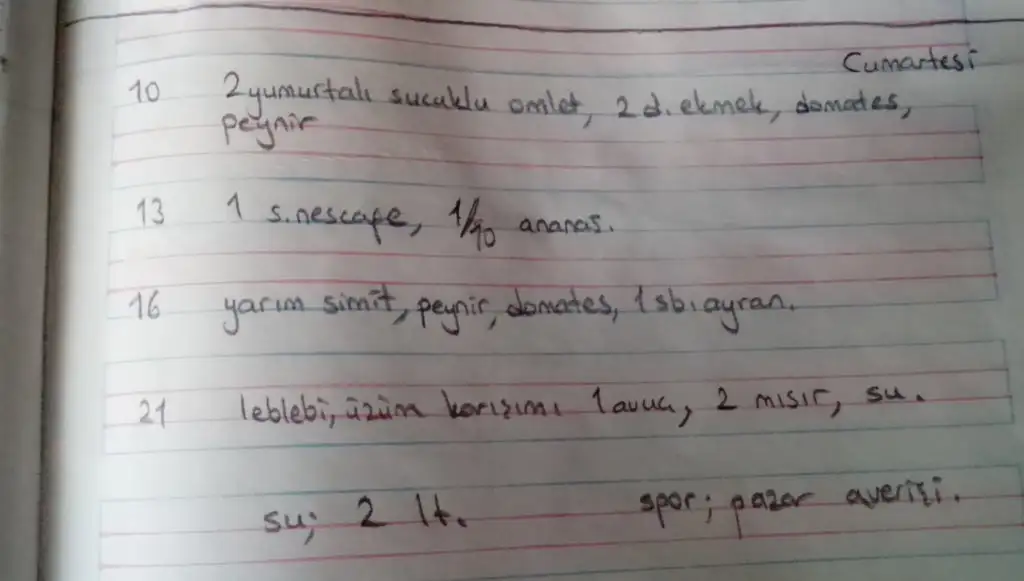 Cumartesi
10 2 yumurtalı sucuklu omlet, 2 d. ekmek, domates,
peynir
13 1 s.nescafe, 1/10 ananas.
16 yarım simit, peynir, domates, 1 sb. ayran.
21 leblebi, üzüm karışımı 1 avuç, 2 mısır, su.
su; 2 lt. spor; pazar averişi.